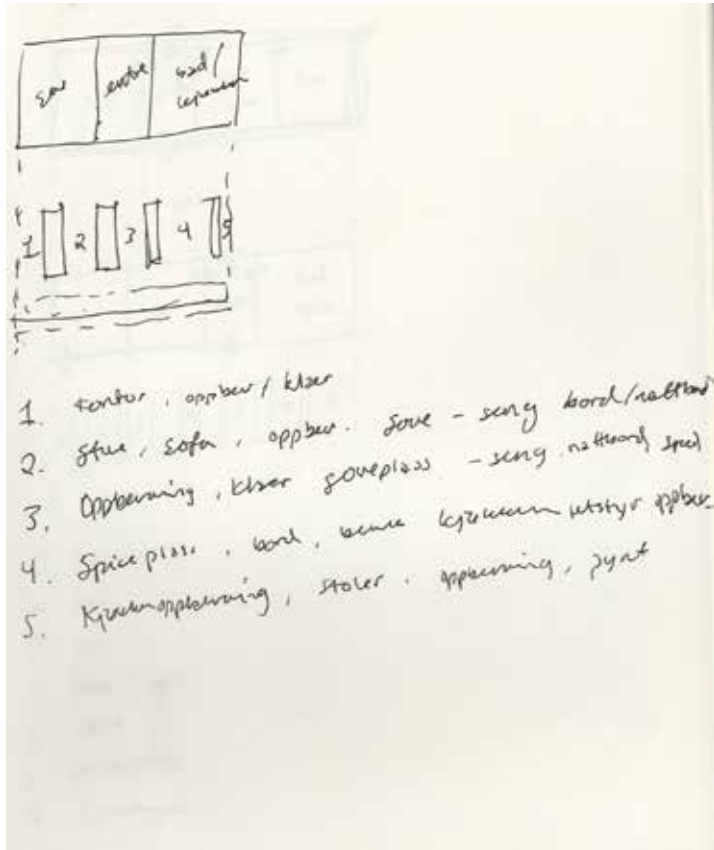 sove entre bad/
1 2 3 4 5
1. Kontor, oppbev/klær
2. Stue, sofa, oppbev. sove - seng bord/nattbord
3. Oppbevaring, klær soveplass - seng nattbord speil
4. Spiseplass, bord, benk kjøkken utstyr oppbev.
5. Kjøkkenoppbevaring, stoler, oppbevaring, pynt